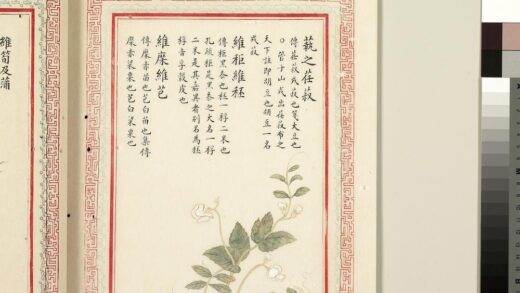 蓺之荏菽
傳荏菽戎菽也箋大豆也
○管子山戎出荏菽布之
天下註即胡豆也胡豆一名
戎菽
維秬維秠
傳秬黑黍也秠一稃二米也
孔疏秬是黑黍之大名一稃
二米是其嘉異者別名為秠
稃音孚穀皮也
維穈維芑
傳穈赤苗也芑白苗也集傳
穈赤粱粟也芑白粱粟也
維筍及蒲